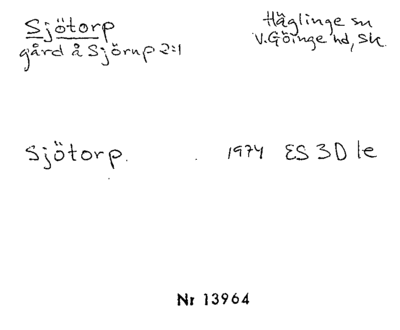 Sjötorp
gård å Sjörup 2:1
Häglinge sn
V. Göinge hd, Sk.
Sjötorp. 1974 ES 3D 1e
Nr 13964